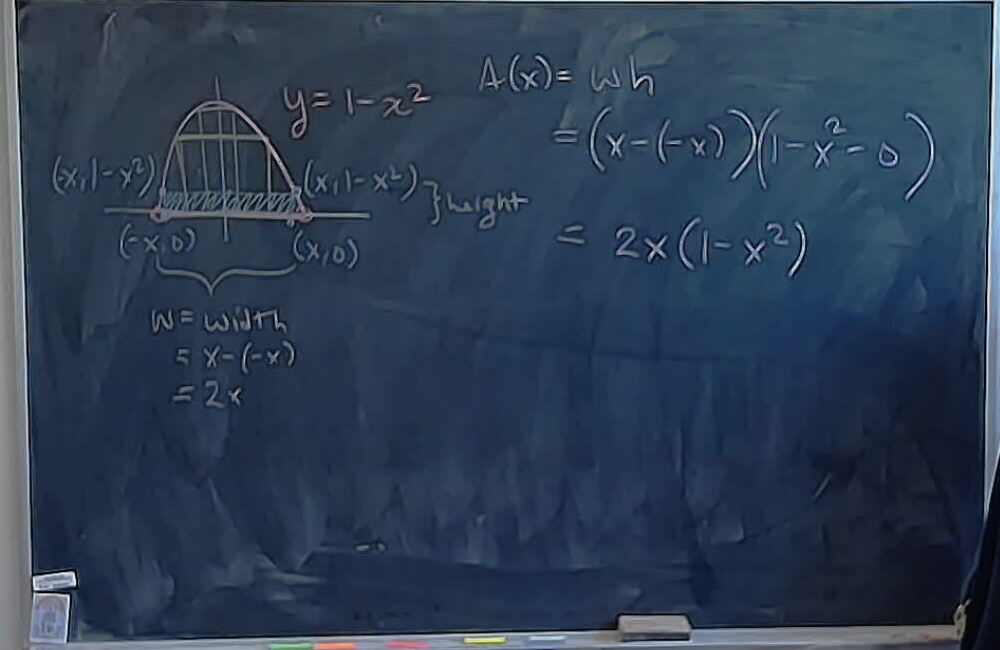 y = 1-x²
(-x, 1-x²)
(x, 1-x²)
} height
(-x, 0)
(x, 0)
W = width
= x-(-x)
= 2x
A(x) = wh
= (x-(-x))(1-x²-0)
= 2x(1-x²)